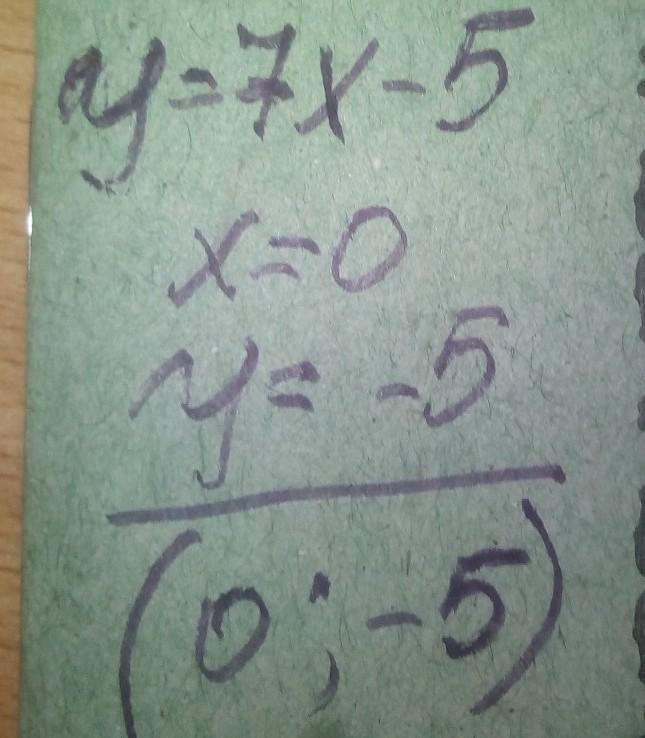 y=7x-5
x=0
y=-5
(0;-5)